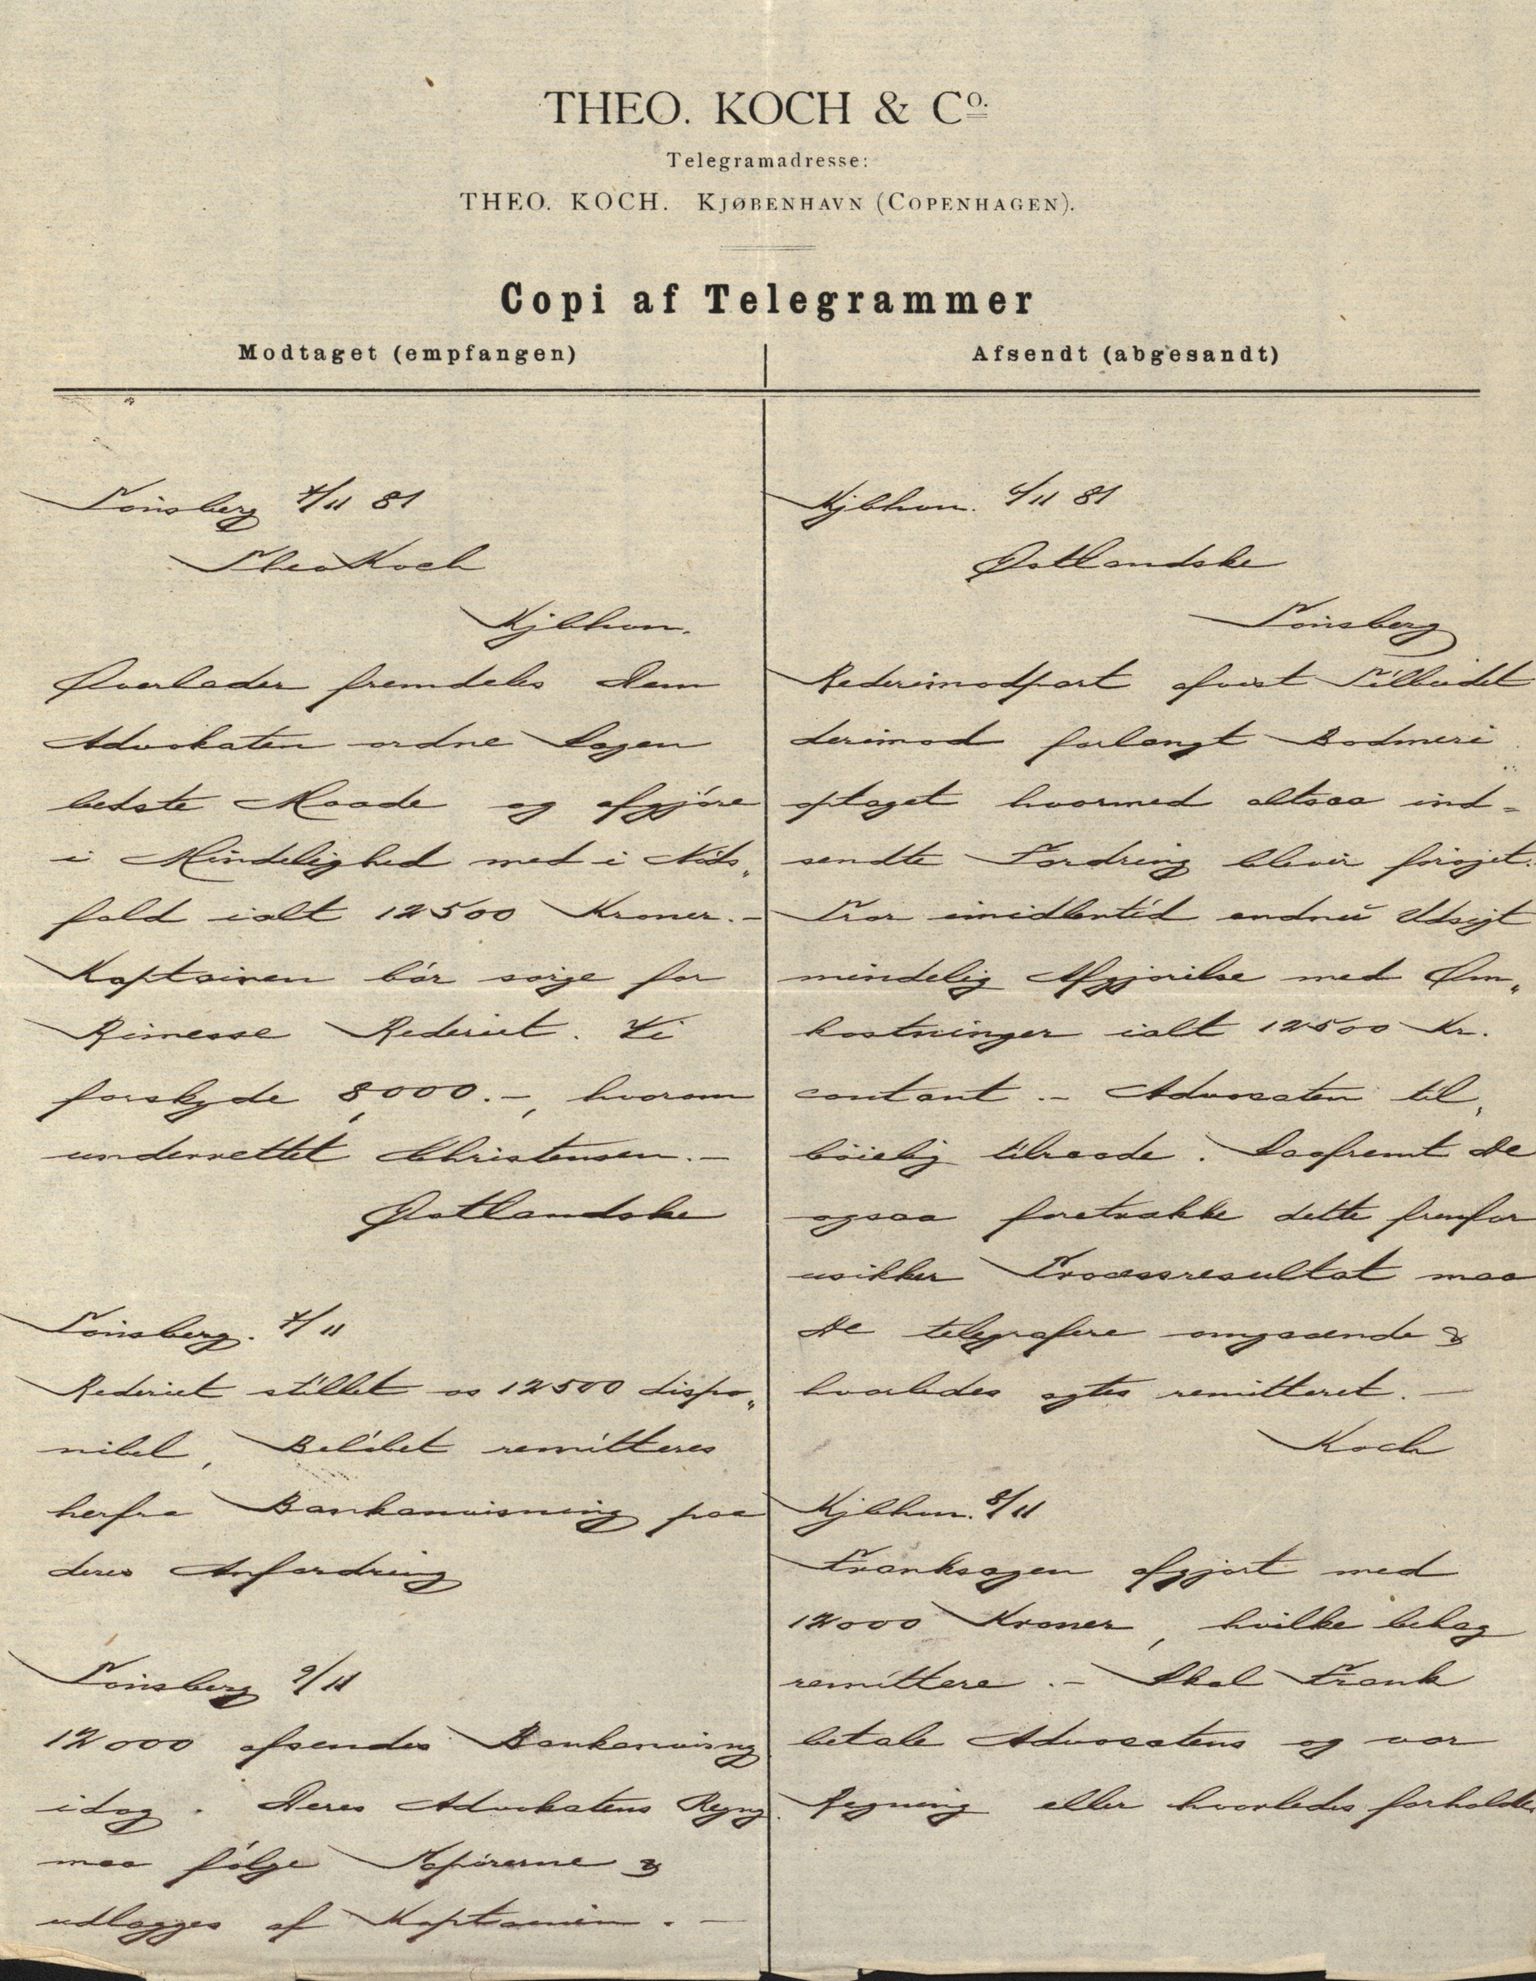 THEO. KOCH & Co.
Telegramadresse:
THEO. KOCH. KJØBENHAVN (COPENHAGEN).
Copi af Telegrammer
Modtaget (empfangen)
Tönsberg 7/11 81
Theo Koch
Kjbhvn.
Overlader fremdeles Dem
Advokaten ordne Sagen
bedste Maade og afgjöre
i Mindelighed med i Nöds„
fald ialt 12500 Kroner. –
Kaptainen bör sörge for
Rimesse Rederiet. Vi
forskyde 8,000. –, hvorom
underrettet Christensen. –
Østlandske
Tönsberg. 7/11
Rederiet stillet os 12500 dispo„
nibel, Belöbet remitteres
herfra Bankanvisning paa
deres Anfordring
Tönsberg 9/11
12000 afsendes Bankanvisng
idag. Deres Advokatens Regng
maa fölge Papirerne &
udlægges af Kaptainen. –
Afsendt (abgesandt)
Kjbhvn. 6/11 81
Østlandske
Tönsberg
Rederimodpart afvist Tilbudet
derimod forlangt Bodmeri
optaget hvormed altsaa ind=
sendte Fordring bliver foröget.
Tror imidlertid endnu Udsigt
mindelig Afgjörelse med Om„
kostninger ialt 12500 Kr.
contant. – Advocaten til„
böielig tilraade. Saafremt De
ogsaa foretrække dette fremfor
usikker Processresultat maa
De telegrafere omgaaende &
hvorledes agtes remitteret. –
Koch
Kjbhvn. 8/11
Franksagen afgjort med
12000 Kroner, hvilke behag
remittere. – Skal Frank
betale Advocatens og vor
Regning eller hvorledes forholdes